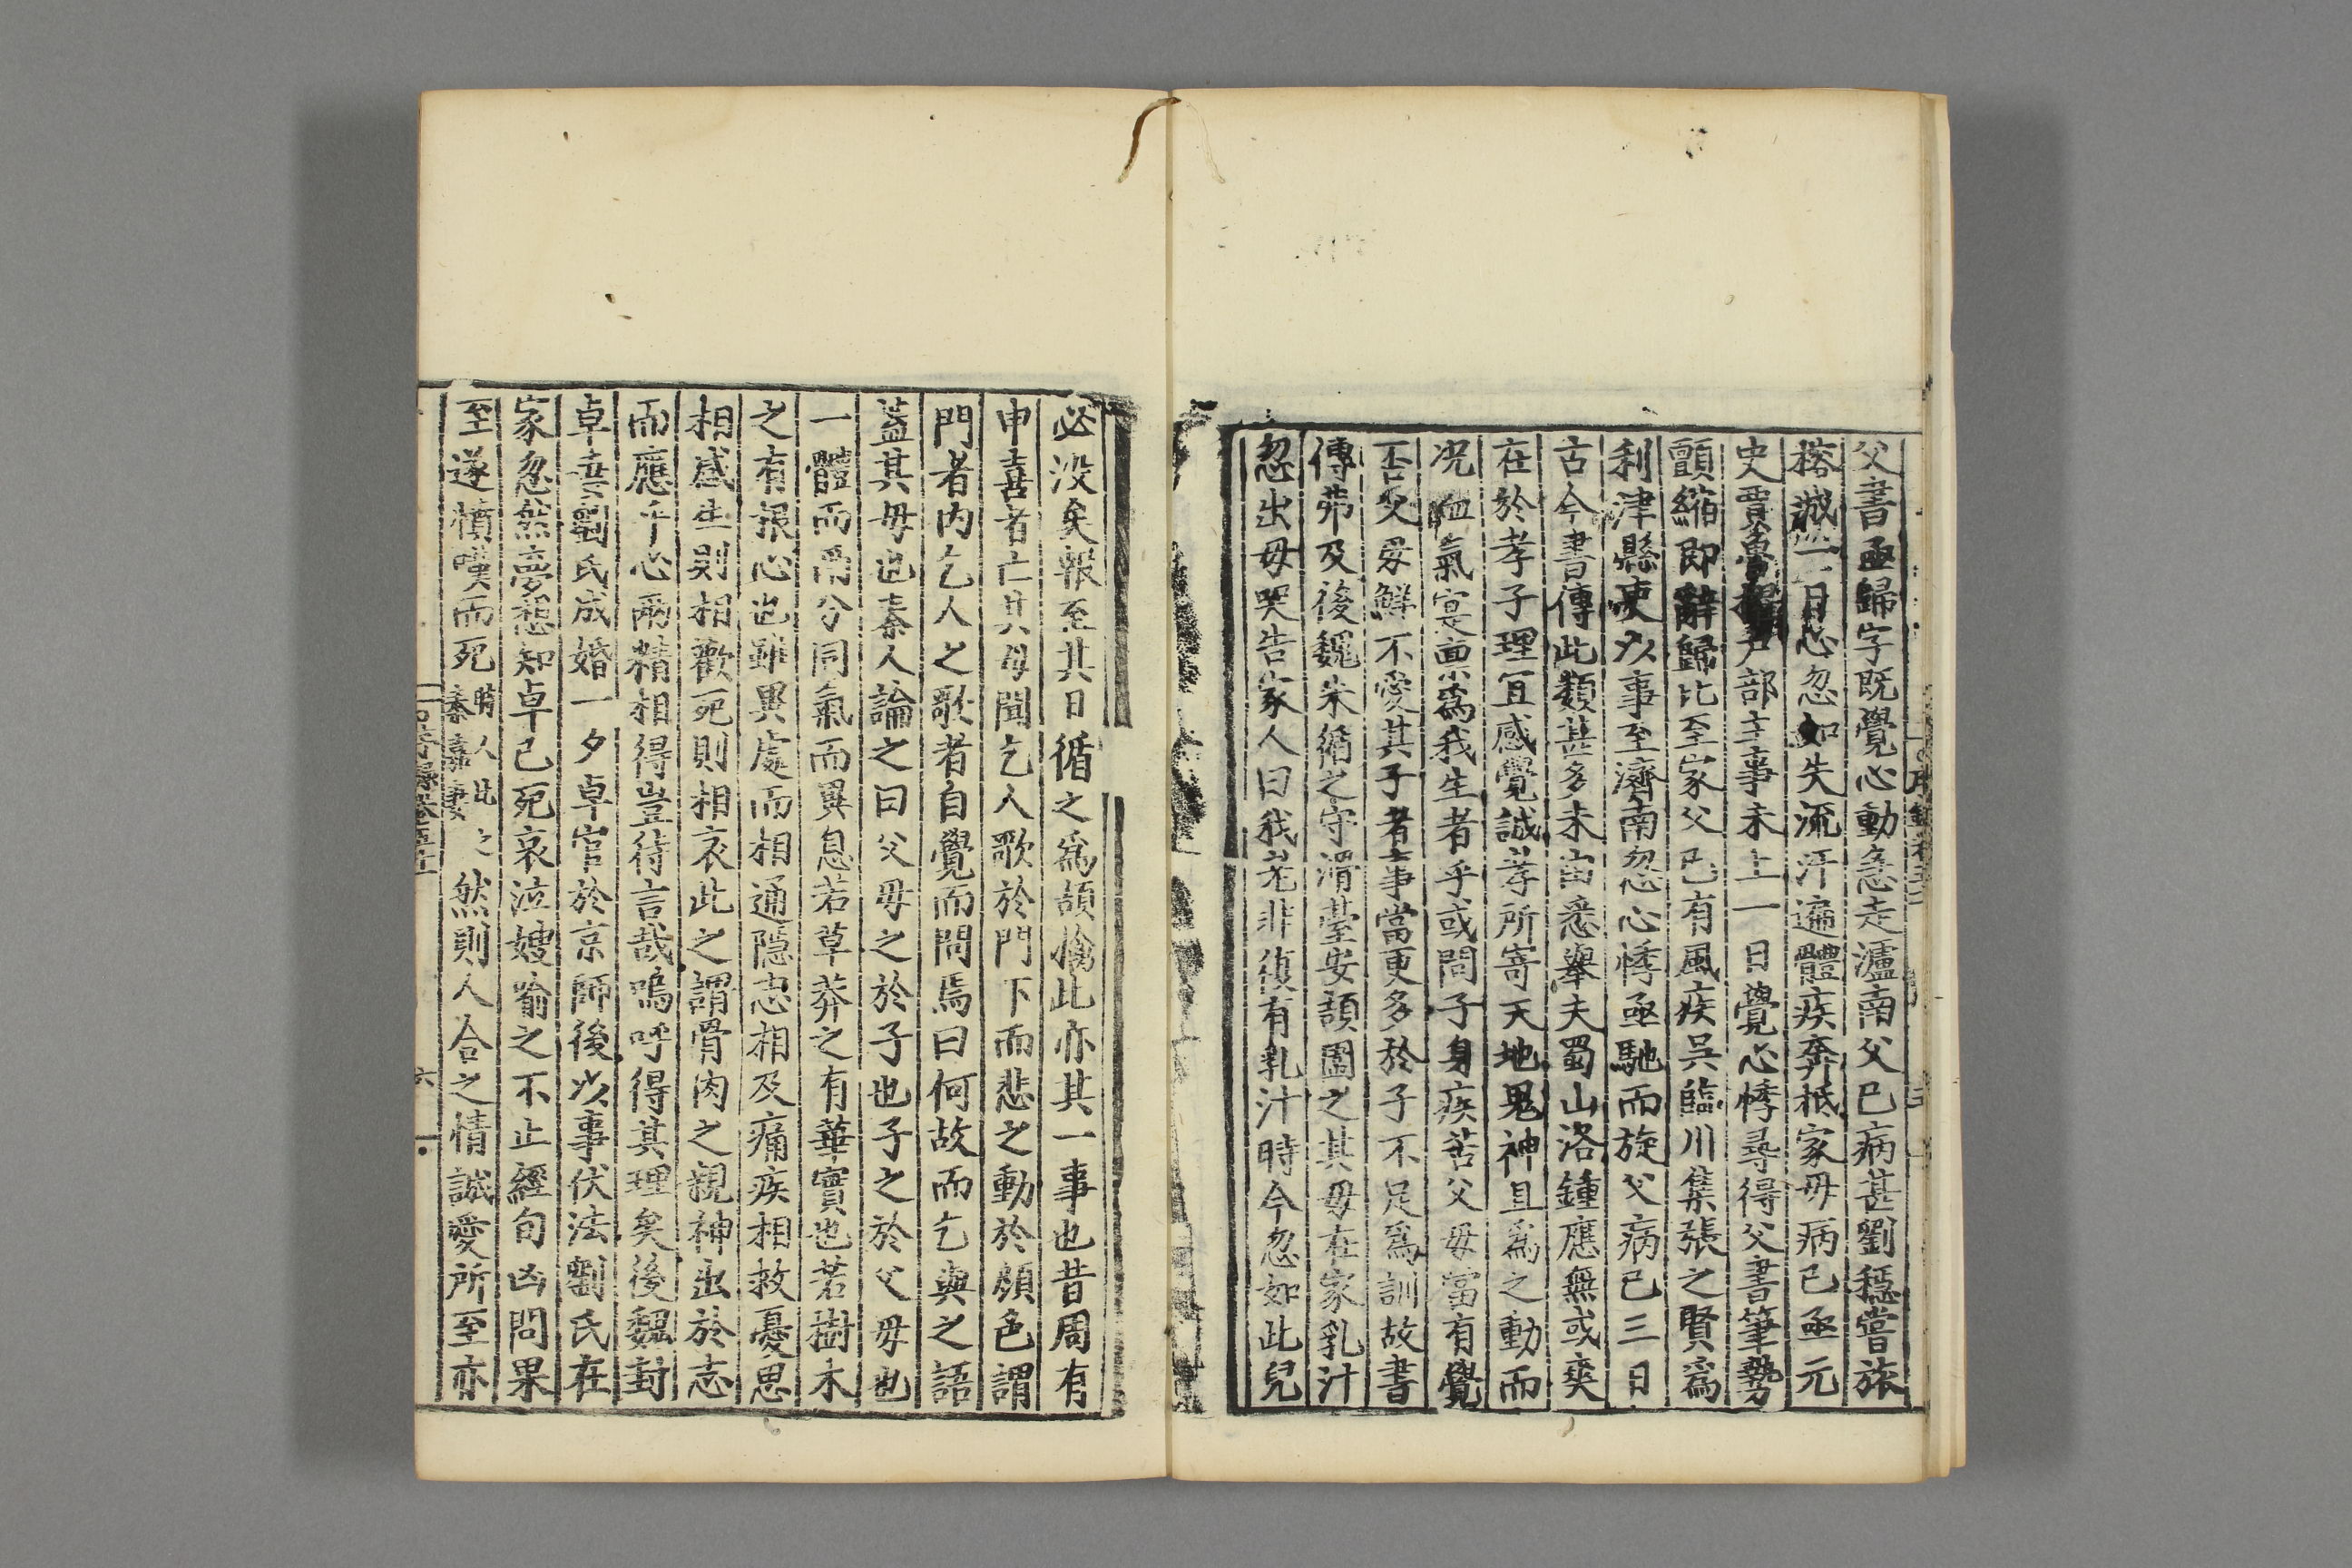 父書亟歸字既覺心動急走瀘南父已病甚劉穩嘗旅
榕誠一日心忽如失流汗遍體疾奔抵家毋病已亟元
史賈魯擢戸部主事未上一日覺心悸尋得父書筆勢
顫縮即辭歸比至家父已有風疾吳臨川集張之賢爲
利津縣吏以事至濟南忽心悸亟馳而旋父病已三日
古今書傳此類甚多未由悉舉夫蜀山洛鍾應無或爽
在於孝子理宜感覺誠孝所寄天地鬼神且爲之動而
况血氣寔禀爲我生者乎或問子身疾苦父毋當有覺
否父毋鮮不愛其子者事當更多於子不足爲訓故書
傳茀及後魏朱脩之守滑臺安頡圍之其毋在家乳汁
忽出毋哭告家人曰我老非復有乳汁時今忽如此兒
必没矣報至其日循之爲頡擒此亦其一事也昔周有
申喜者亡其母聞乞人歌於門下而悲之動於顔色謂
門者内乞人之歌者自覺而問焉曰何故而乞與之語
葢其毋也秦人論之曰父毋之於子也子之於父毋也
一體而兩分同氣而異息若草莽之有華實也若樹木
之有根心也雖異處而相通隱志相及痛疾相救憂思
相感生則相歡死則相哀此之謂骨肉之親神出於志
而應乎心兩精相得豈待言哉嗚呼得其理矣後魏封
卓妻劉氏成婚一夕卓官於京師後以事伏法劉氏在
家忽然夢想知卓已死哀泣嫂喻之不止經旬凶問果
至遂憤嘆而死時人比之秦嘉妻然則人合之情誠愛所至亦
六